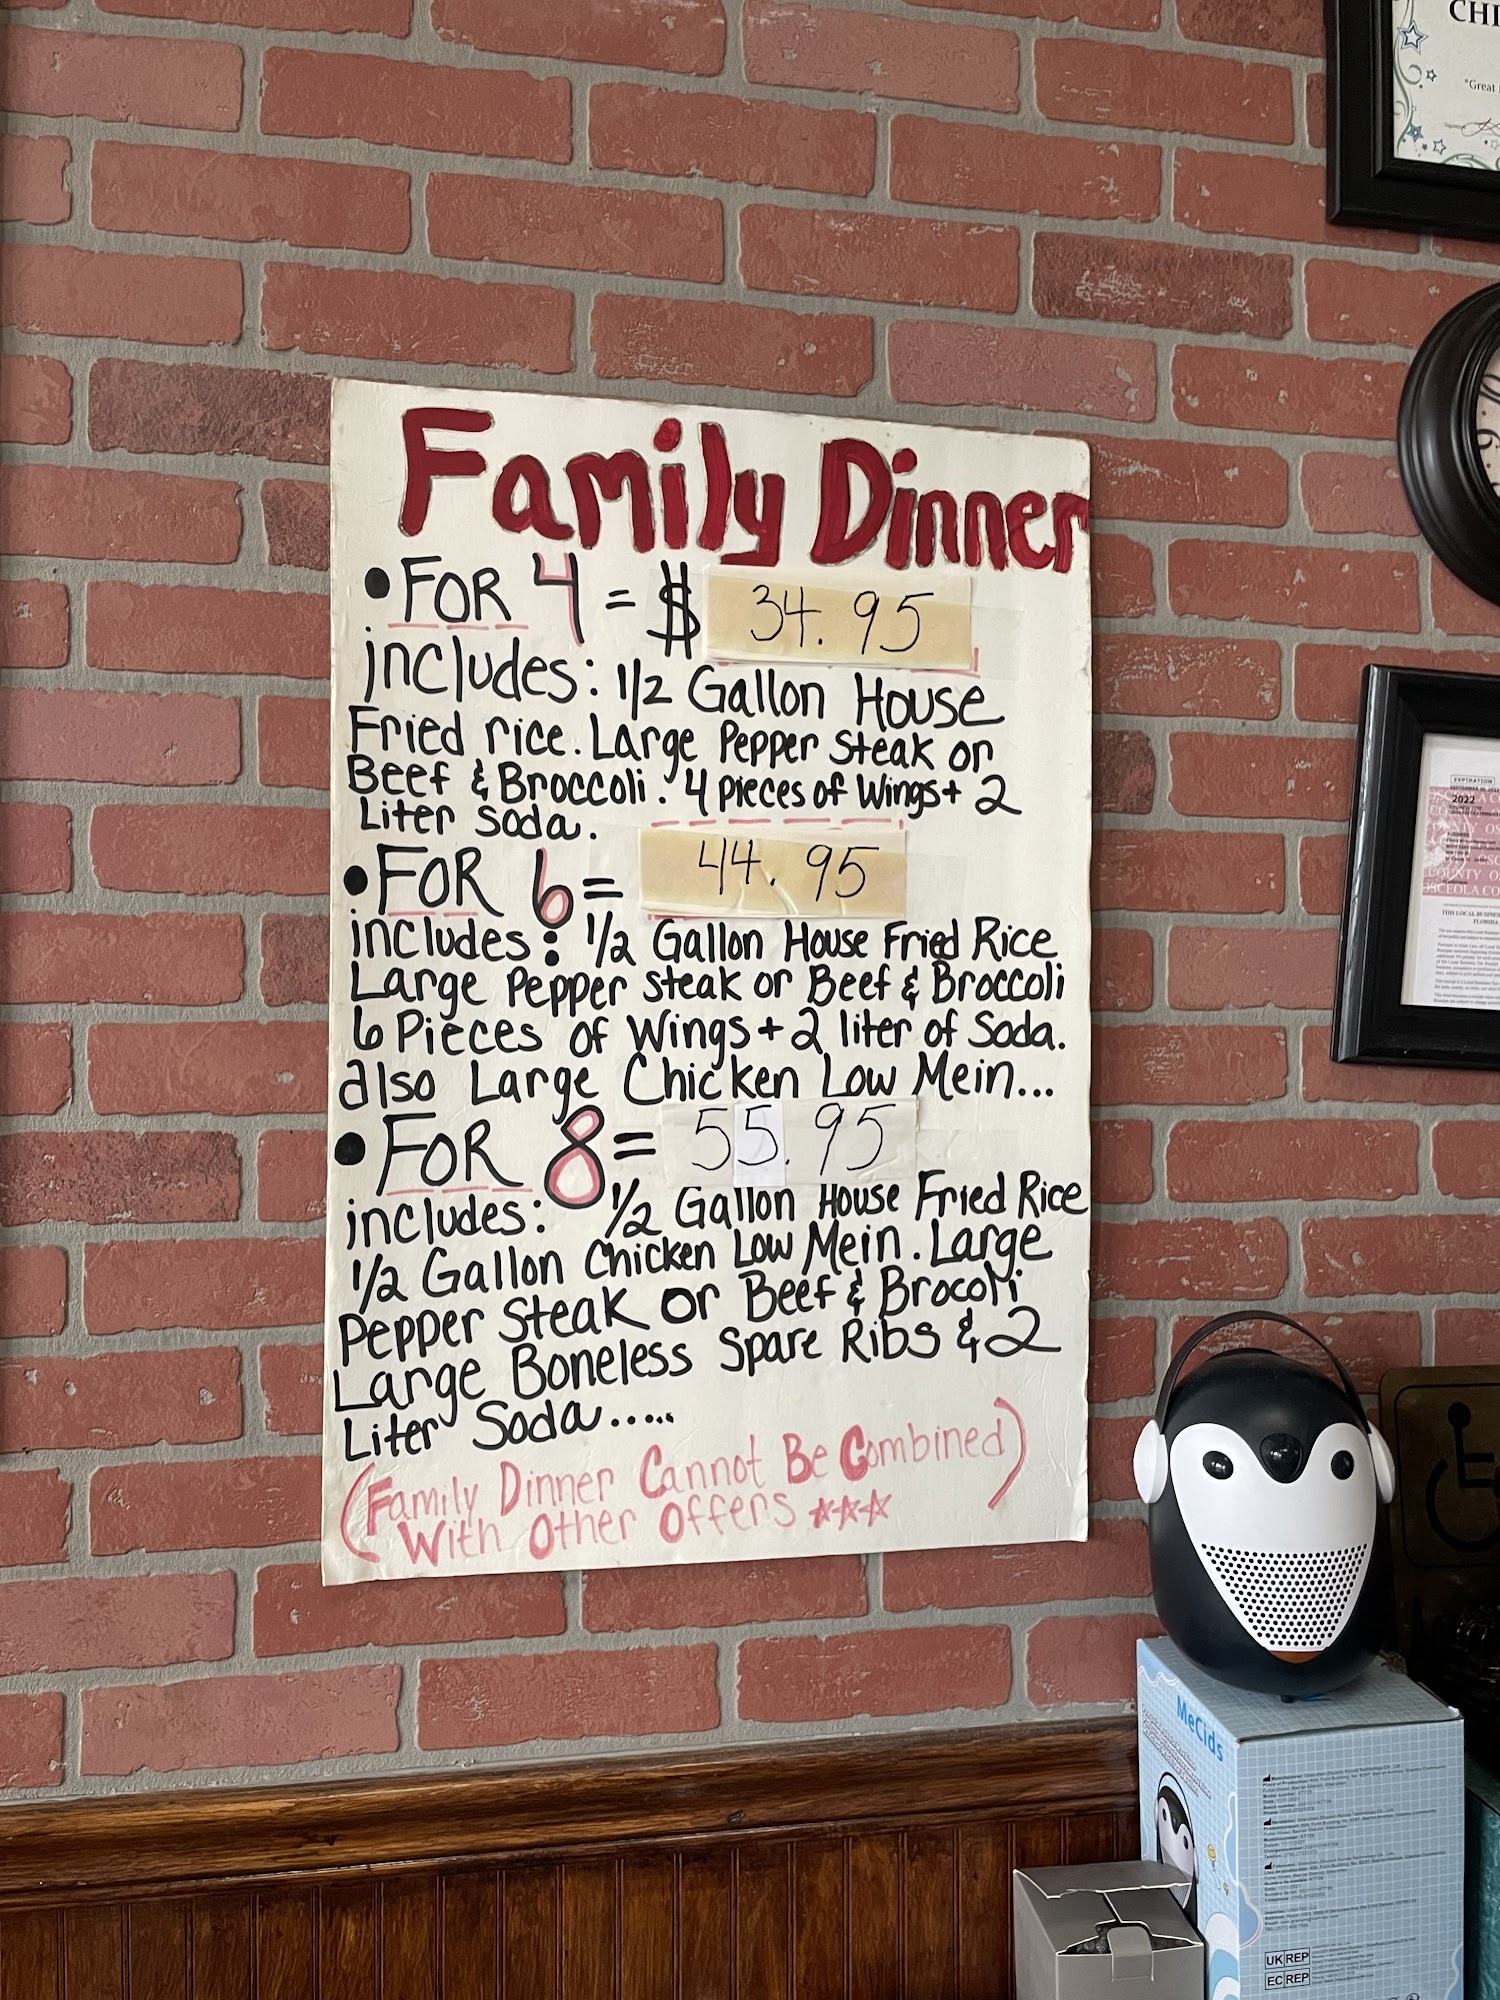 Family Dinner
• FOR 4 = $ 34.95
includes: 1/2 Gallon House
Fried rice. Large Pepper Steak or
Beef & Broccoli. 4 pieces of Wings + 2
Liter soda.
• FOR 6 = 44.95
includes: 1/2 Gallon House Fried Rice
Large Pepper steak or Beef & Broccoli
6 Pieces of Wings + 2 liter of Soda.
also Large Chicken Low Mein...
• FOR 8 = 55.95
includes: 1/2 Gallon House Fried Rice
1/2 Gallon Chicken Low Mein. Large
Pepper Steak or Beef & Brocoli
Large Boneless Spare Ribs & 2
Liter Soda.....
(Family Dinner Cannot Be Combined)
With Other Offers ☆☆☆
CHI
"Great
EXPIRATION
2022
OSCEOLA CO
MeCids
UK REP
EC REP